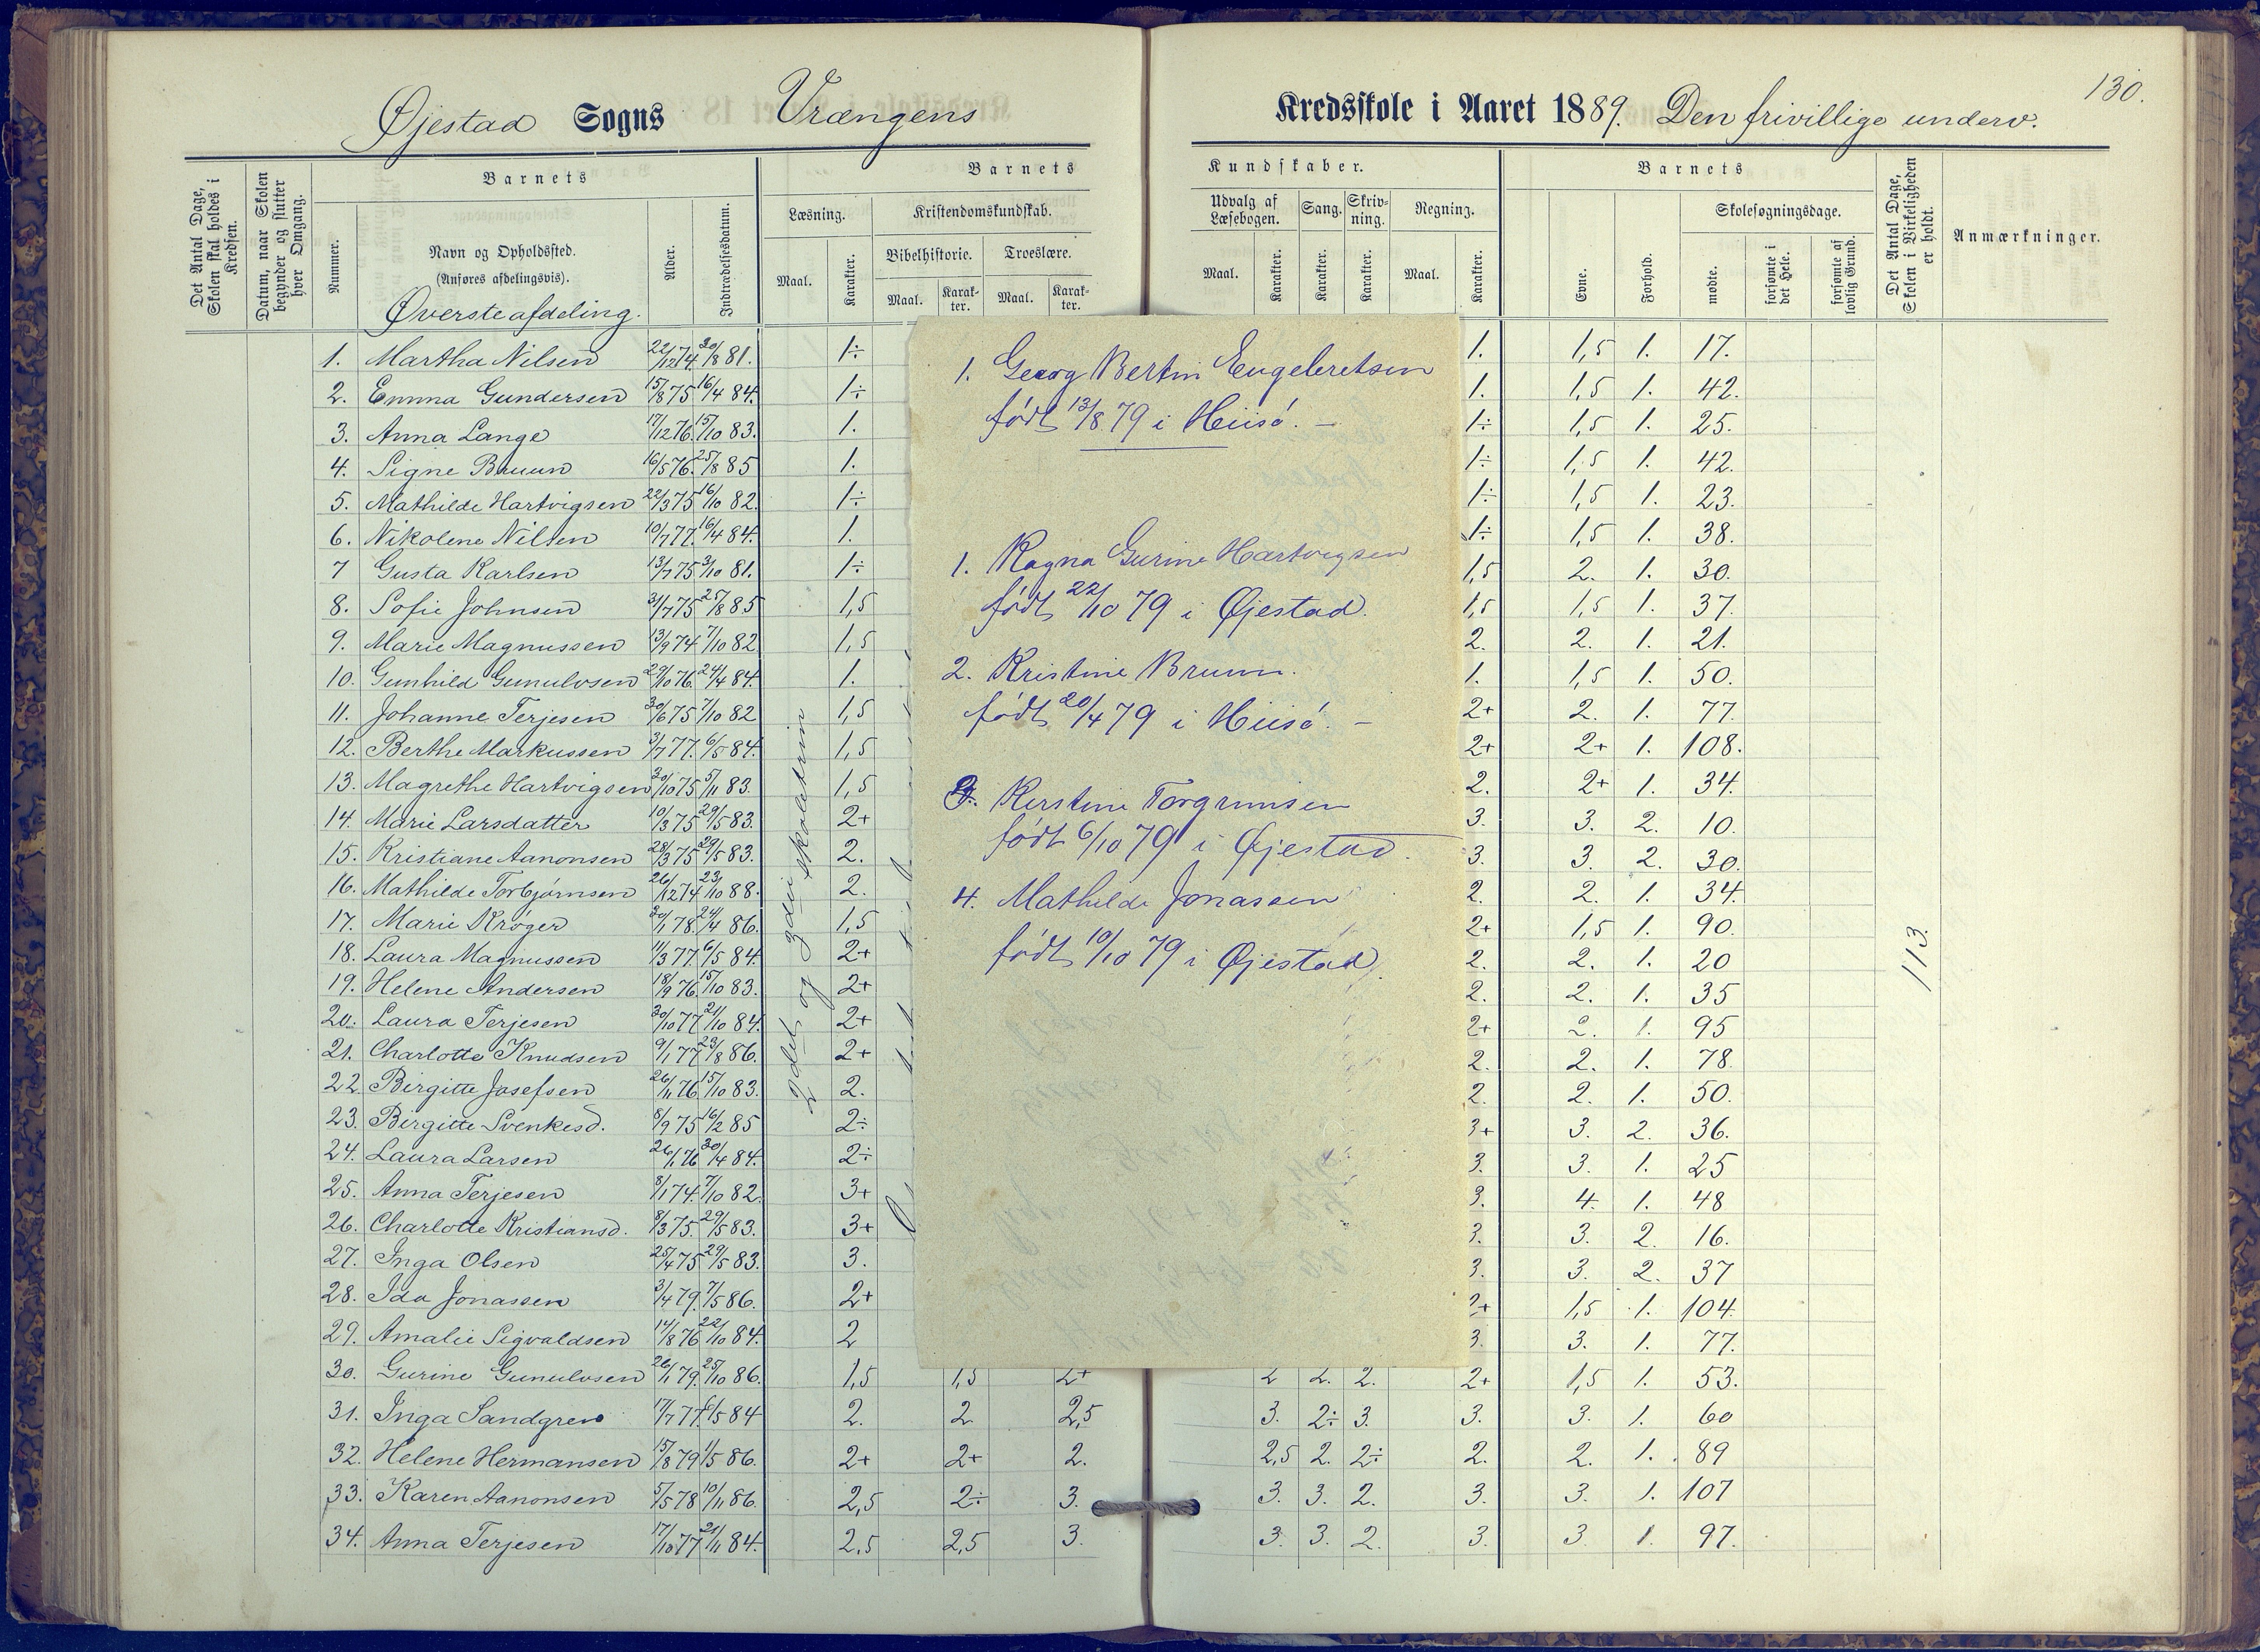 130.
Øjestad Sogns Vrængens Kredsskole i Aaret 1889. Den frivillige underv.
Det Antal Dage, Skolen skal holdes i Kredsen.
Datum, naar Skolen begynder og slutter hver Omgang.
Barnets
Nummer.
Navn og Opholdssted.
(Anføres afdelingsvis).
Alder.
Indtrædelsesdatum.
Barnets Kundskaber.
Læsning.
Maal.
Karakter.
Kristendomskundskab.
Bibelhistorie.
Maal.
Karakter.
Troeslære.
Maal.
Karakter.
Udvalg af Læsebogen.
Maal.
Karakter.
Sang.
Karakter.
Skrivning.
Karakter.
Regning.
Maal.
Karakter.
Barnets
Evne.
Forhold.
Skolesøgningsdage.
mødte.
forsømte i det Hele.
forsømte af lovlig Grund.
Det Antal Dage, Skolen i Virkeligheden er holdt.
Anmærkninger.
Øverste afdeling.
1. Martha Nilsen 22/12 74. 30/8 81. 1÷ 1. 1,5 1. 17.
2. Emma Gundersen 15/8 75 16/4 84. 1÷ 1. 1,5 1. 42.
3. Anna Lange 17/12 76. 15/10 83. 1. 1÷ 1,5 1. 25.
4. Signe Bruun 16/5 76. 25/8 85 1. 1÷ 1,5 1. 42.
5. Mathilde Hartvigsen 22/3 75 16/10 82. 1÷ 1÷ 1,5 1. 23.
6. Nikolene Nilsen 10/7 77. 16/4 84. 1. 1÷ 1,5 1. 38.
7 Gusta Karlsen 13/7 75 3/10 81. 1÷ 1,5 2. 1. 30.
8. Sofie Johnsen 31/7 75 25/8 85 1,5 1,5 1,5 1. 37.
9. Marie Magnussen 13/9 74 7/10 82 1,5 2. 2. 1. 21.
10. Gunhild Gunulvsen 29/10 76. 24/4 84. 1. 1. 1,5 1. 50.
11. Johanne Terjesen 30/6 75 7/10 82 1,5 2+ 2. 1. 77.
12. Berthe Markussen 3/7 77. 6/5 84. 1,5 2+ 2+ 1. 108.
13. Magrethe Hartvigsen 30/10 75 5/11 83. 1,5 2. 2+ 1. 34.
14. Marie Larsdatter 10/3 75 29/5 83. 2+ 3. 3. 2. 10.
15. Kristiane Aanonsen 28/3 75 29/5 83. 2. 3. 3. 2. 30.
16. Mathilde Torbjørnsen 26/12 74 23/10 88. 2. 2. 2. 1. 34.
17. Marie Krøger 30/1 78. 24/4 86. 1,5 2+ 1,5 1. 90.
18. Laura Magnussen 11/3 77 6/5 84. 2+ 2. 2. 1. 20
19. Helene Andersen 18/9 76. 15/10 83. 2+ 2. 2. 1. 35
20. Laura Terjesen 30/10 77 21/10 84. 2+ 2+ 2. 1. 95
21. Charlotte Knudsen 9/1 77 23/8 86. 2+ 2. 2. 1. 78
22. Birgitte Josefsen 26/11 76 15/10 83. 2. 2. 2. 1. 50.
23. Birgitte Svenkesd. 8/9 75 16/2 85 2÷ 3+ 3. 2. 36.
24. Laura Larsen 26/1 76 30/4 84. 2÷ 3. 3. 1. 25
25. Anna Terjesen 8/1 74. 7/10 82. 3+ 3. 4. 1. 48
26. Charlotte Kristiansd. 8/3 75. 29/5 83. 3+ 3. 3. 2. 16.
27. Inga Olsen 25/4 75 29/5 83. 3. 3. 3. 2. 37
28. Ida Jonassen 3/4 79. 7/5 86. 2+ 2+ 1,5 1. 104.
29. Amalie Sigvaldsen 14/8 76 22/10 84. 2 3. 3. 1. 77.
30. Gurine Gunulvsen 26/1 79. 25/10 86. 1,5 1,5 2+ 2 2. 2. 2+ 1,5 1. 53.
31. Inga Sandgren 17/7 77. 6/5 84 2. 2 2,5 3. 2÷ 3. 3. 3. 1. 60
32. Helene Hermansen 15/8 79 1/5 86. 2+ 2+ 2. 2,5 2. 2÷ 2. 2. 1. 89
33. Karen Aanonsen 5/5 78 10/11 86. 2,5 2÷ 3. 3. 3. 2. 3. 3. 1. 107
34. Anna Terjesen 17/10 77 21/11 84. 2,5 2,5 3. 3. 3. 2. 3. 3 1. 97.
2det og 3die skoletrin
113.
1. Georg Bertin Engebretsen
født 13/8 79 i Hiisø. –
1. Ragna Gurine Hartvigsen
født 22/10 79 i Øjestad.
2. Kristine Bruun.
født 20/4 79 i Hiisø. –
3. Kerstine Torgrimsen
født 6/10 79 i Øjestad.
4. Mathilde Jonassen
født 10/10 79 i Øjestad.